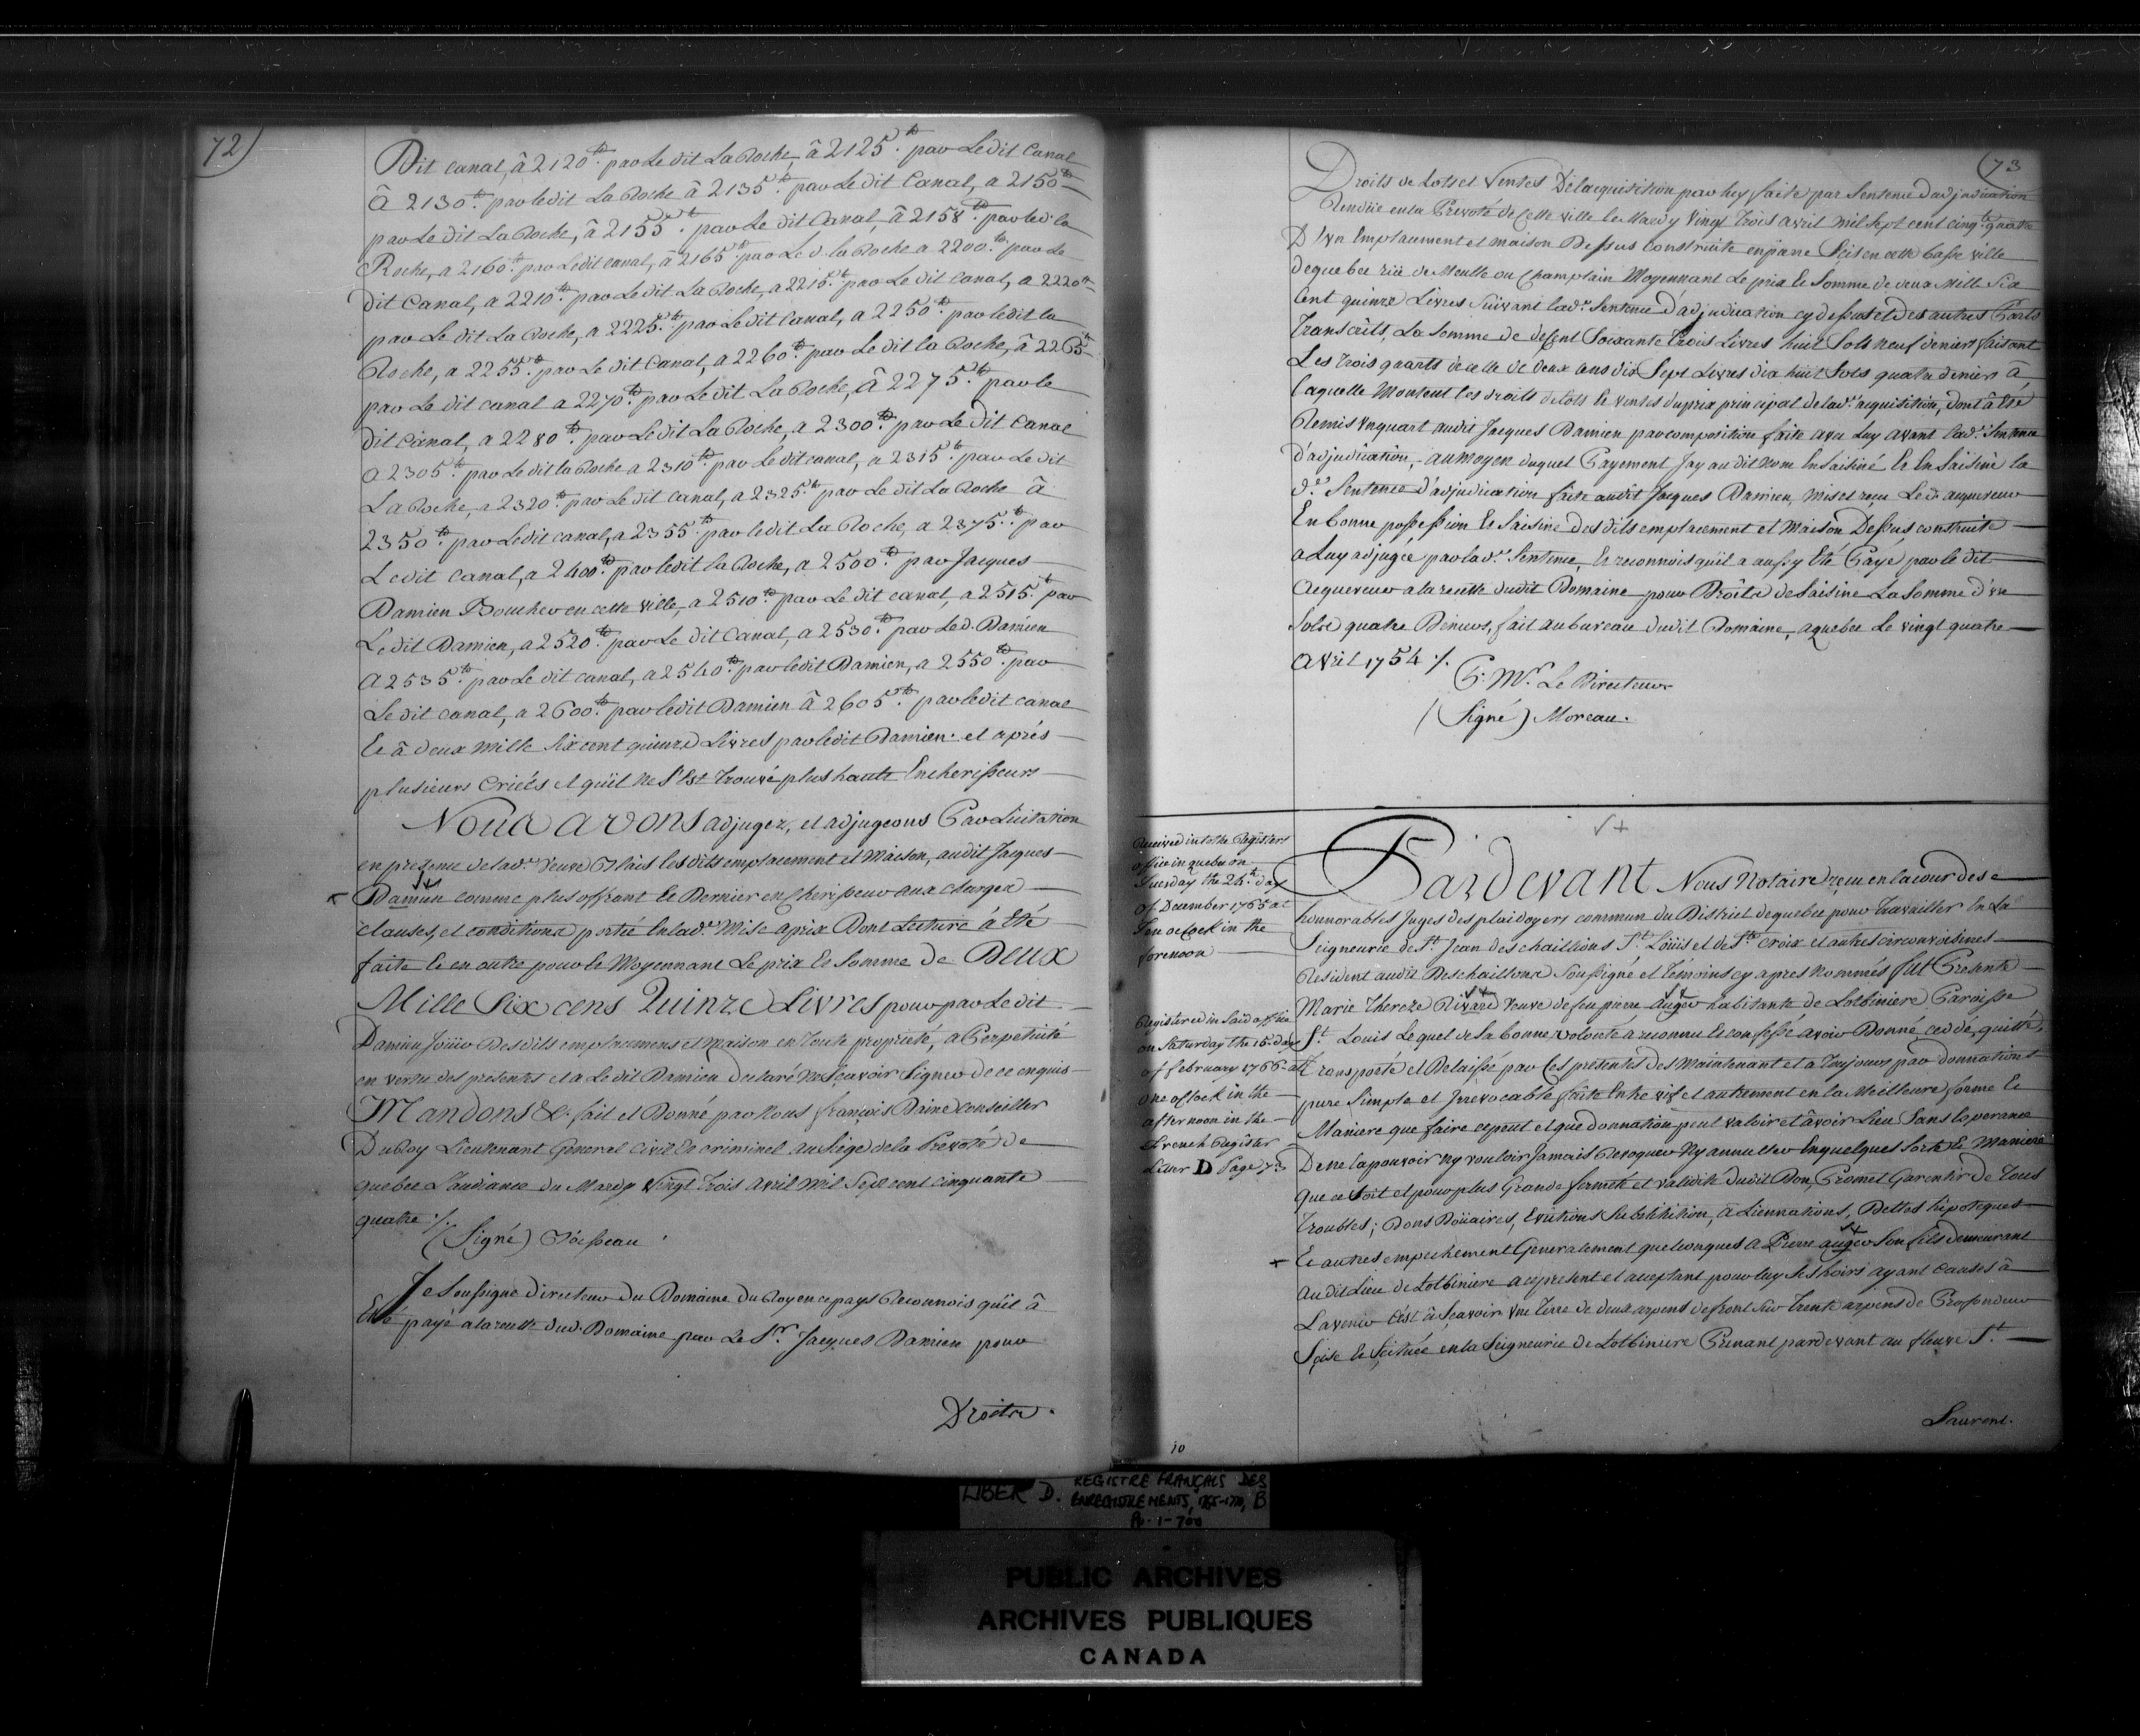 72)
Dit Canal, à 2120tt. par Le dit La Roche, à 2125tt. par Le dit Canal
à 2130tt. par ledit La Roche à 2135tt. par Le dit Canal, a 2150tt
par Le dit La Roche, à 2155tt. par Le dit Canal, à 2158tt. par led. la
Roche, a 2160tt. par Ledit canal, à 2165tt. par Le d. la Roche a 2200tt. par Le
dit Canal, a 2210tt. par Le dit La Roche, a 2215tt. par Le dit Canal, a 2220tt
par Le dit La Roche, a 2225tt. par Le dit Canal, a 2250tt. par ledit la
Roche, a 2255tt. par Le dit Canal, a 2260tt. par Le dit la Roche, à 2265tt
par Le dit canal a 2270tt. par Le dit La Roche, à 2275tt. par le
dit Canal, a 2280tt. par Le dit La Roche, a 2300tt. par Le dit Canal
a 2305tt. par Le dit la Roche a 2310tt. par Le dit canal, a 2315tt. par Le dit
La Roche, a 2320tt. par Le dit Canal, a 2325tt. par Le dit La Roche à
2350tt. par Ledit canal, a 2355tt. par ledit La Roche, a 2375tt. par
Le dit Canal, a 2400tt. par ledit la Roche, a 2500tt. par Jacques
Damien Boucher en cette ville, a 2510tt. par Le dit canal, a 2515tt. par
Le dit Damien, a 2520tt. par Le dit Canal, a 2530tt. par Led. Damien
A 2535tt. par Le dit canal, a 2540tt. par ledit Damien, a 2550tt. par
Le dit canal, a 2600tt. par ledit Damien à 2605tt. par ledit canal
Et à deux mille six cent quinze Livres par ledit Damien. et après
plusieurs Criées et quil ne s'Est trouvé plus hauts Encherisseurs
Nous avons adjugez, et adjugeons Par Licitation
en presence de lad.e veuve Blais lesdits emplacement et Maison, audit Jacques
Damien comme plus offrant Et Dernier encherisseur aux charges
clauses, et conditions porté En lad.e Mise aprix Dont Lecture à Eté
faite Et en outre pour et Moyennant Le prix Et Somme de Deux
Mille Six cens Quinze Livres pour par Le dit
Damien Jouir Desdits emplacemens et Maison en Toute proprieté, a Perpetuité
en vertu des presentes et a Le dit Damien declaré ne Sçavoir Signer de ce enquis
Mandons &c. fait et Donné par Nous françois Daine Conseiller
Du Roy Lieutenant General Civil Et criminel au Siege de la Prevoté de
quebec L'audiance du Mardy Vingt Trois Avril Mil Sept cent cinquante
quatre ./.
(Signé) Boisseau
Je Soussigné Directeur Du Domaine du Roy en ce pays Reconnois qu'il à
Eté payé a la recette dud. Domaine par Le Sr. Jacques Damien pour
Droits.
(73
Droits de Lots et Ventes De lacquisition par luy faite par Sentence Dadjudication
Rendüe en la Prevoté de Cette ville le Mardy Vingt Trois avril mil sept cent cinq.te quatre
D'Un Emplacement et maison Dessus construite Seis en cette basse ville
de quebec rüe de Meulle ou Champlain Moyennant Le prix Et Somme de deux Mille Six
Cent quinze Livres Suivant lad.e Sentence d'adjudication cy dessus et des autres Parts
Transcrits, La Somme de Soixante Trois Livres huit Sols neuf deniers faisant
Les trois quarts de celle de deux cens dix Sept Livres dix huit Sols quatre deniers à
Laquelle Montent les droits de Lots Et ventes du prix principal de lad.e acquisition, dont à Eté
Remis un quart audit Jacques Damien par composition faite avec Luy avant lad.e Sentence
d'adjudication, au moyen duquel Payement Jay au dit Nom Ensaisiné Et Ensaisine la
d.e Sentence d'adjudication faite audit Jacques Damien, mis et reçu Le d. acquereur
En bonne possession Et Saisine desdits emplacement et Maison Dessus construite
a Luy adjugée par lad.e Sentence, Et reconnois qu'il a aussy Eté Payé par le dit
Acquereur a la recette dudit Domaine pour Droits de Saisine La Somme d'un
Sols quatre Deniers, fait au bureau dudit Domaine, a quebec Le vingt quatre
Avril 1754 ./.
P. Mr. Le Directeur
(Signé) Moreau.
Received into the Registers
office in quebec on
Tuesday the 24th. day
of December 1765 at
Ten o Clock in the
forenoon
Registered in Said office
on Saturday the 15 day
of february 1766 at
One o Clock in the
afternoon in the
French Register
Liber D Page 73
Pardevant Nous Notaire reçu en la cour des
honnorables Juges des plaidoyers commun du District de quebec pour Travailler En La
Seigneurie de St. Jean des chaillions St. Loüis et de Ste Croix et autres circonvoisines
Resident audit Deschaillons Soussigné et Témoins cy apres Nommés fut Presente
Marie Thereze Rivard veuve de feu pierre auger habitante de Lotbiniere Paroisse
St. Louis Lequel de Sa bonne volonté a reconnu Et confessé avoir Donné, ceddé, quitté,
Transporté et Delaissé par Ces presentes des Maintenant et a Toujours par donnation
pure Simple et Irrevocable faite Entre vif et autrement en la Meilleure forme Et
Maniere que faire ce peut et que donnation peut valoir et avoir Lieu Sans Esperance
De ne la pouvoir Ny vouloir Jamais Revoquer Ny annuller En quelques Sorte Et Maniere
que ce Soit et pour plus Grande fermeté et validité dudit Don, Promet Garentir De Tous
Troubles; Dons Doüaires, Evictions Substitution, àLiennations, Dettes hipoteques
Et autres empechement Generalement quelconques a Pierre auger Son fils demeurant
audit Lieu de Lotbiniere a ce present et acceptant pour luy Ses hoirs ayant causes à
Lavenir C'est àSçavoir Une Terre de deux arpens de front Sur Trente arpens de Profondeur
Scise Et Scituée en la Seigneurie de Lotbiniere Prenant pardevant au fleuve St.
Laurent.
10
LIBER D. REGISTRE FRANÇAIS DES
ENREGISTREMENTS, 1765-1770, B
Pp. 1-700
PUBLIC ARCHIVES
ARCHIVES PUBLIQUES
CANADA